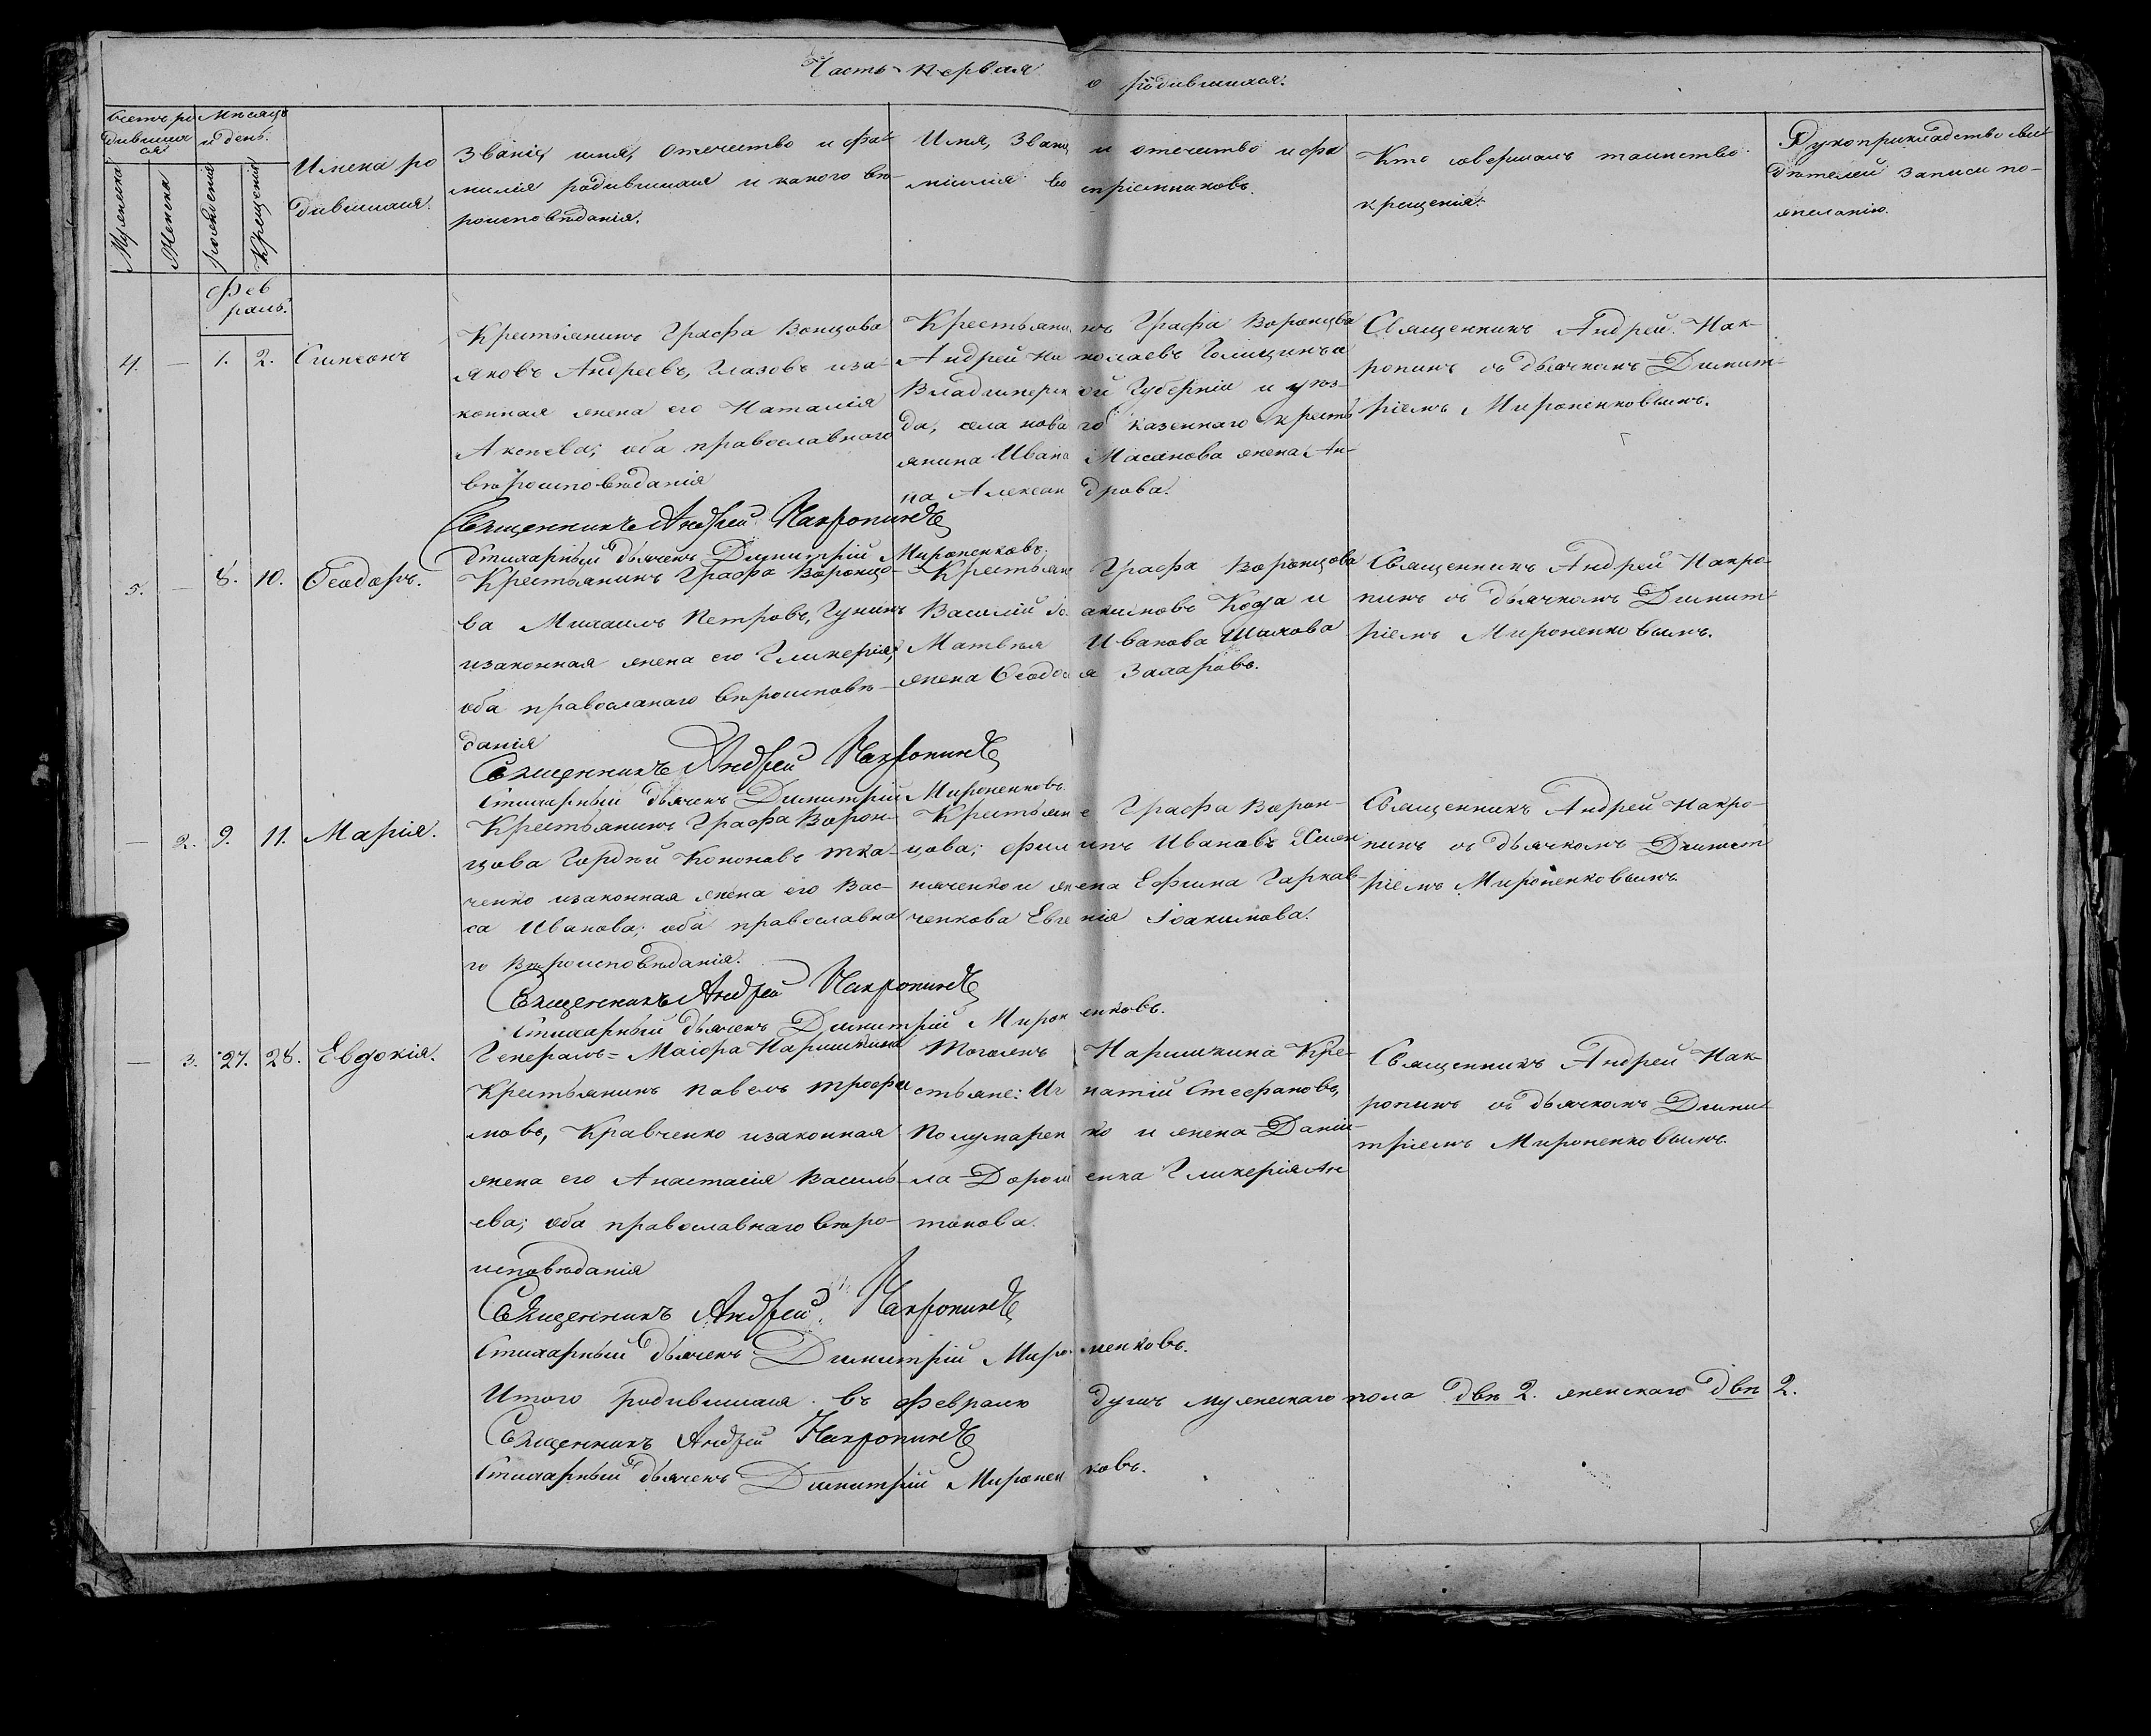 Часть первая о родившихся.
Счетъ ро
дивших
ся
Мѣсяцъ
и день.
Мужеска
Женска
рожденія
Крещенія
Имена ро
дившихся.
Званіе, имя, отечество и фа-
милія родившихся и какого вѣ-
роисповѣданія.
Имя, Званіе и отечество и фа
милія воспріемниковъ.
Кто совершалъ таинство
крещенія.
Рукоприкладство сви-
дѣтелей записи по-
желанію.
Фев
раль.
4. — 1. 2. Симеонъ
Крестьянинъ Графа Вонцова
Яковъ Андреевъ, Глазовъ иза-
конная жена его Наталія
Аксѣева; оба православнаго
вѣроисповѣданія
Крестьянинъ Графа Воронцова
Андрей Николаевъ Голицинъ и
Владимерской Губерніи и уѣз-
да, села новаго казеннаго кресть
янина Ивана Масанова жена Ан-
на Александрова.
Священникъ Андрей Нак-
ропинъ съ дьячкомъ Димит-
ріемъ Мироненковымъ.
Священникъ Андрей Накропинъ
Стихарный дьячекъ Димитрій Мироненковъ.
5. — 8. 10. Ѳеодоръ.
Крестьянинъ Графа Воронцо-
ва Михаилъ Петровъ, Гунинъ
изаконная жена его Гликерія,
оба православнаго вѣроисповѣ-
данія
Крестьяне Графа Воронцова
Василій Іоакимовъ Коза и
Матвѣя Иванова Шахова
жена Ѳеодосія Захаровъ.
Священникъ Андрей Накро-
пинъ съ дьячкомъ Димит-
ріемъ Мироненковымъ.
Священникъ Андрей Накропинъ
Стихарный дьячекъ Димитрій Мироненковъ.
— 2. 9. 11. Марія.
Крестьянинъ Графа Ворон-
цова Гордѣй Кононовъ тка-
ченко изаконная жена его Вас-
са Иванова; оба православна
го вѣроисповѣданія.
Крестьяне Графа Ворон-
цова; Филипъ Ивановъ
няченко и жена Ефима Гаркав-
ченкова Евгенія Іоакимова.
Священникъ Андрей Накро-
пинъ съ дьячкомъ Димит
ріемъ Мироненковымъ
Священникъ Андрей Накропинъ
Стихарный дьячекъ Димитрій Мироненковъ.
— 3. 27. 28. Евдокія.
Генералъ=Маіора Наришкина
Крестьянинъ Павелъ трофи
мовъ, Кравченко изаконная
жена его Анастасія Василь-
ева; оба православнаго вѣро-
исповѣданія
Тогожъ Наришкина Кре-
стьяне: Игнатій Стефановъ,
Полумаренко и жена Даніи-
ла Дорошенка Гликерія Ан
тонова.
Священникъ Андрей Нак-
ропинъ съ дьячкомъ Дими-
тріемъ Мироненковымъ.
Священникъ Андрей Накропинъ
Стихарный дьячекъ Димитрій Мироненковъ.
Итого родившихся въ Февралѣ душъ мужескаго пола двѣ 2. женскаго двѣ 2.
Священникъ Андрей Накропинъ
Стихарный дьячекъ Димитрій Мироненковъ.